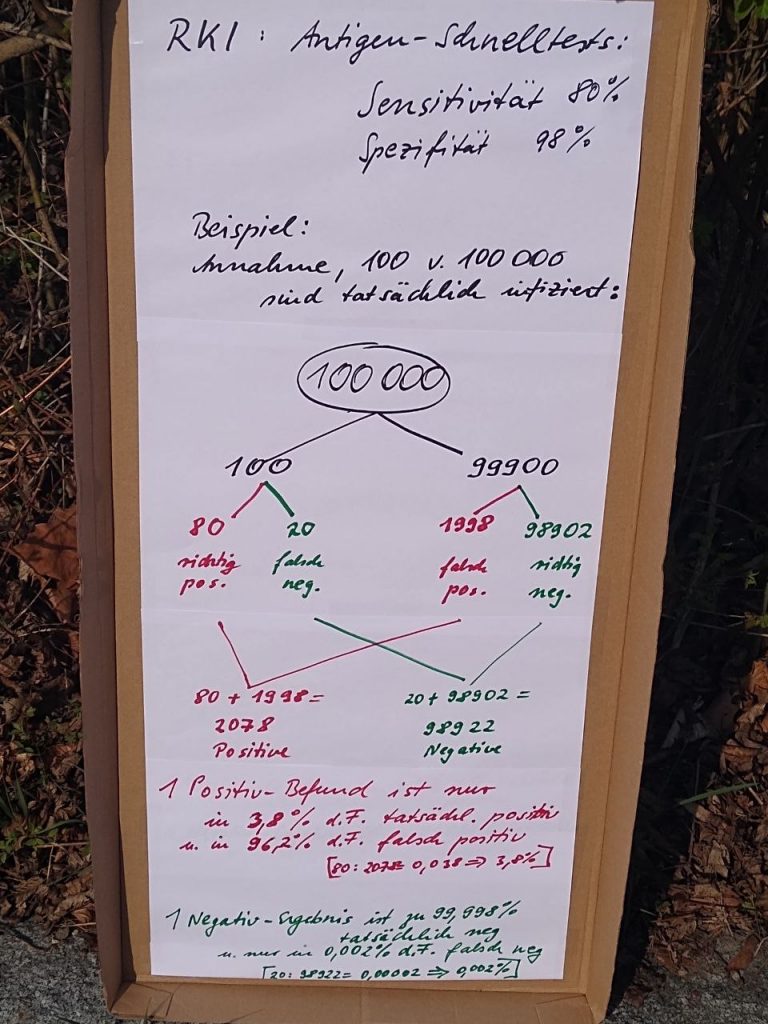 RKI : Antigen-Schnelltests:
Sensitivität 80%
Spezifität 98%
Beispiel:
Annahme, 100 v. 100 000
sind tatsächlich infiziert:
100 000
100 99900
80 20 1998 98902
richtig falsch falsch richtig
pos. neg. pos. neg.
80 + 1998 = 20 + 98902 =
2078 98922
Positive Negative
1 Positiv-Befund ist nur
in 3,8% d.F. tatsächl. positiv
u. in 96,2% d.F. falsch positiv
[80: 2078= 0,038 ⇒ 3,8%]
1 Negativ-Ergebnis ist zu 99,998%
tatsächlich neg
u. nur in 0,002% d.F. falsch neg
[20: 98922= 0,00002 ⇒ 0,002%]